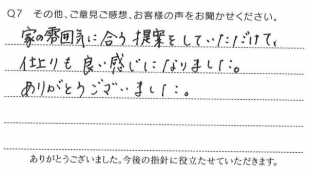 Q7 その他、ご意見ご感想、お客様の声をお聞かせください。
家の雰囲気に合う提案をしていただけて、
仕上りも良い感じになりました。
ありがとうございました。
ありがとうございました。今後の指針に役立たせていただきます。